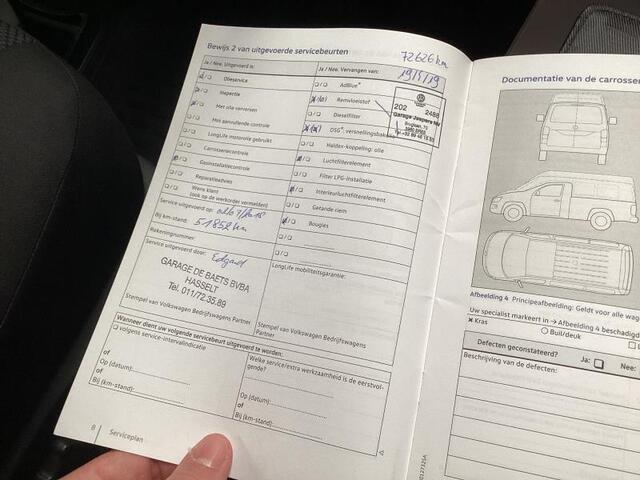 Bewijs 2 van uitgevoerde servicebeurten
72626 km
19/5/19
Ja / Nee: Uitgevoerd is:
Olieservice
Inspectie
Met olie verversen
Met aanvullende controle
LongLife motorolie gebruikt
Carrosseriecontrole
Gasinstallatiecontrole
Reparatieadvies
Wens klant
(ook op de werkorder vermelden)
Service uitgevoerd op:
Bij km-stand: 51852 km
Rekeningnummer:
Service uitgevoerd door: Edgard
GARAGE DE BAETS BVBA
HASSELT
Tel. 011/72.35.89
Stempel van Volkswagen Bedrijfswagens
Partner
Ja / Nee: Vervangen van:
AdBlue®
Remvloeistof
Dieselfilter
DSG®, versnellingsbakolie
Haldex-koppeling: olie
Luchtfilterelement
Filter LPG-installatie
Interieurluchtfilterelement
Getande riem
Bougies
202 2488
Garage Jaspers NV
LongLife mobiliteitsgarantie:
Stempel van Volkswagen Bedrijfswagens
Partner
Wanneer dient uw volgende servicebeurt uitgevoerd te worden:
volgens service-intervalindicatie
of
Op (datum):
of
Bij (km-stand):
Welke service/extra werkzaamheid is de eerstvol-
gende?
Op (datum):
of
Bij (km-stand):
8 Serviceplan
Documentatie van de carrosser
Afbeelding 4 Principeafbeelding: Geldt voor alle wag
Uw specialist markeert in → Afbeelding 4 beschadig
Kras
Buil/deuk
Defecten geconstateerd? Ja: Nee:
Beschrijving van de defecten: